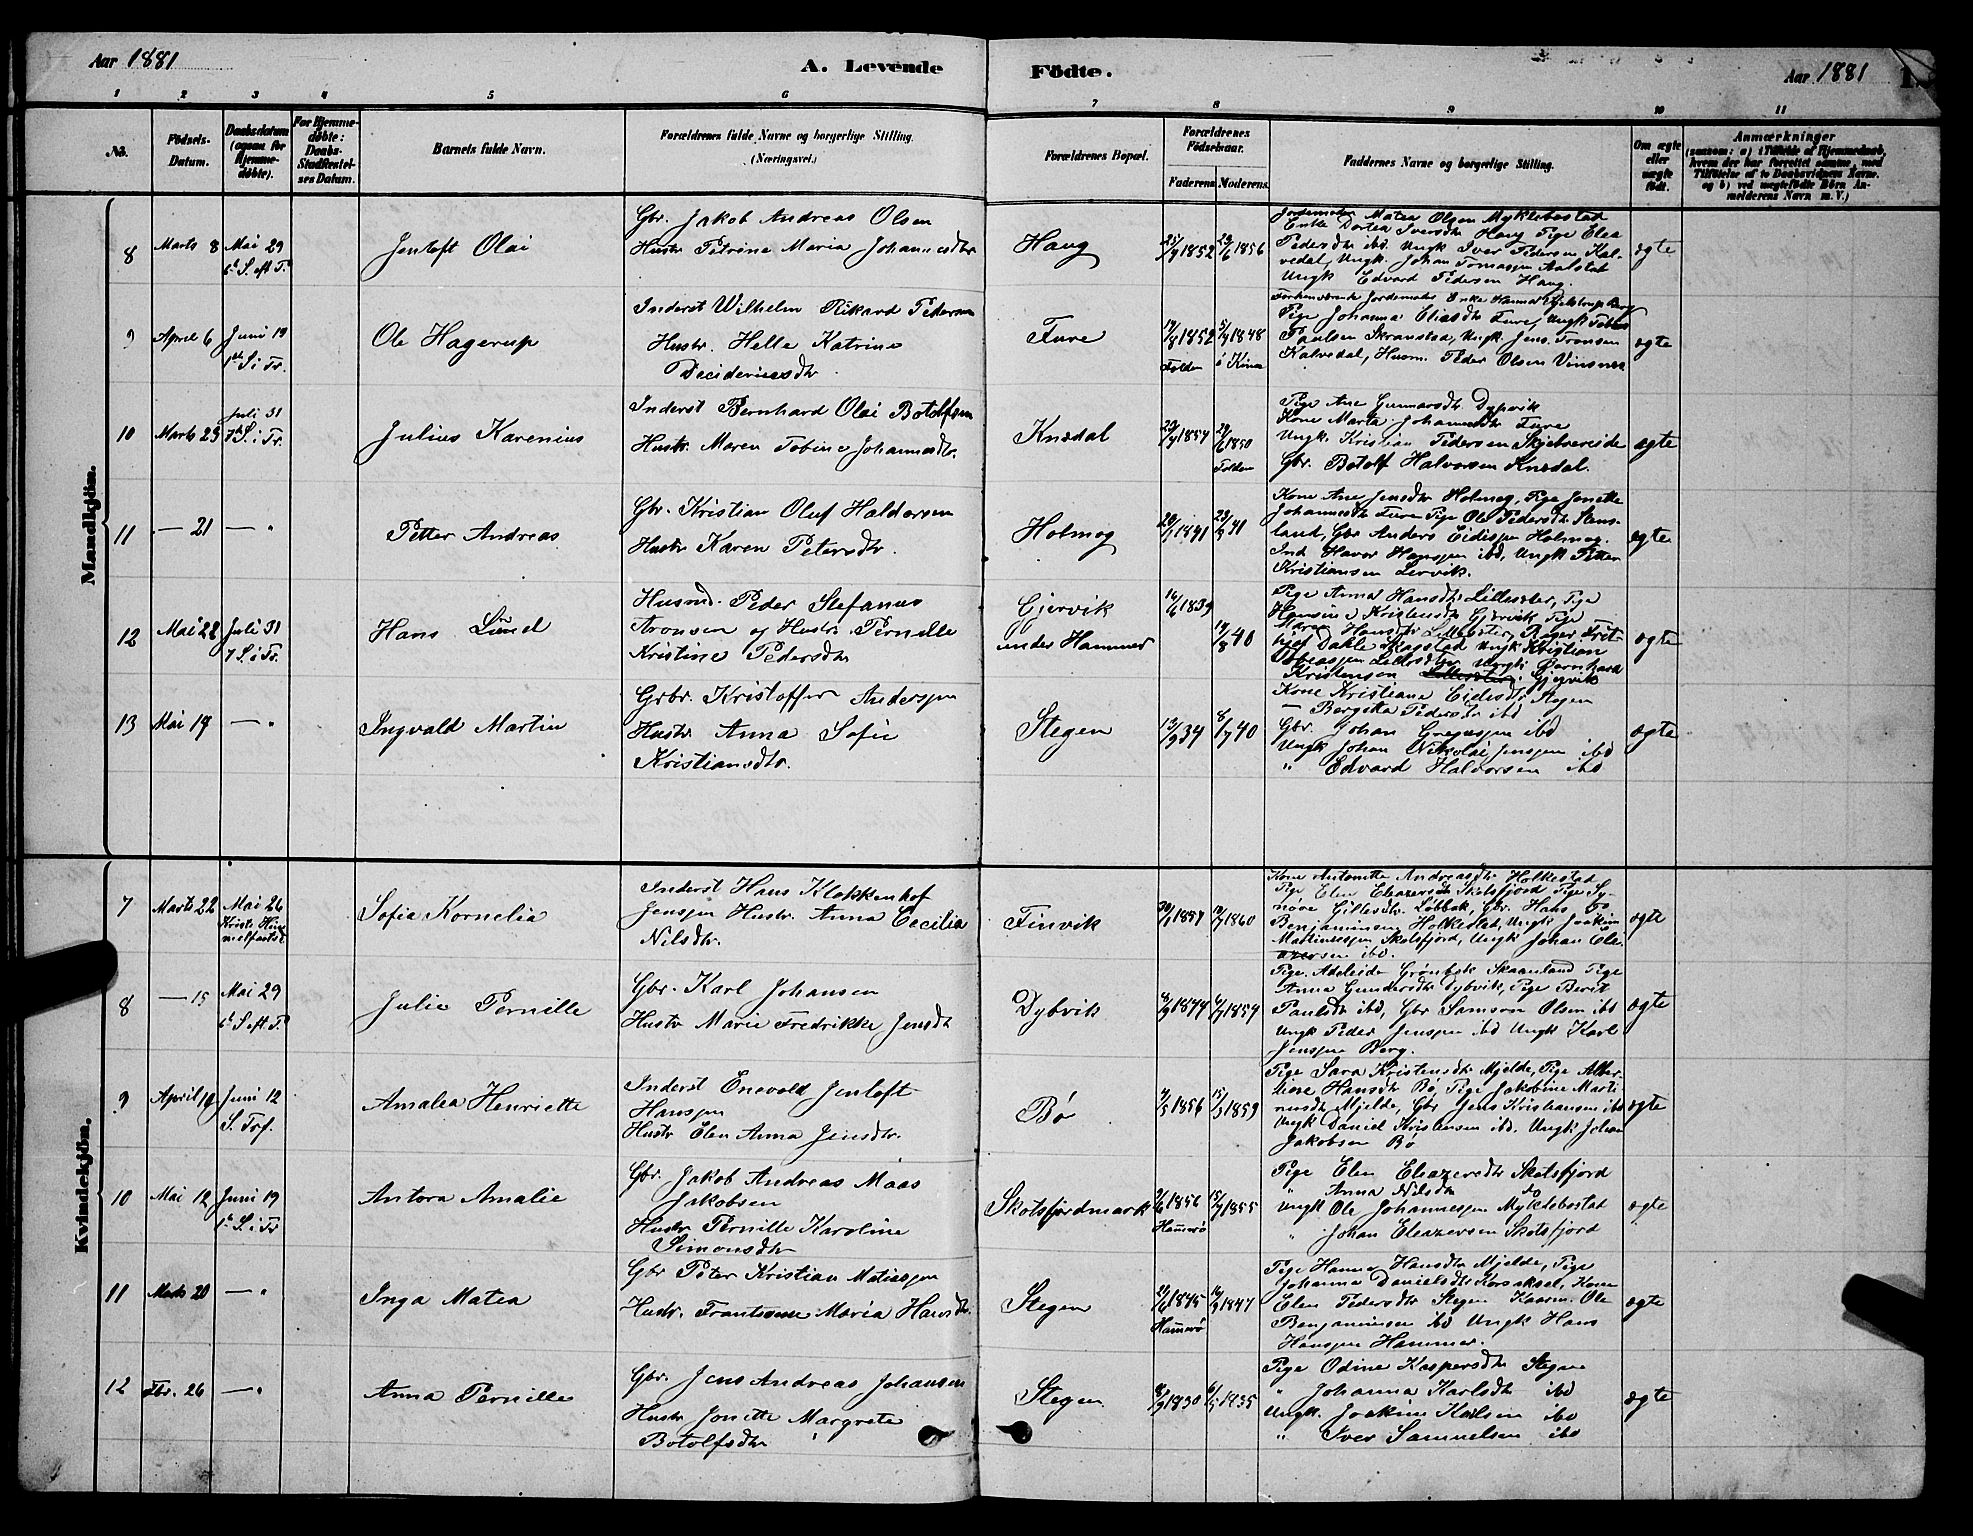 Aar 1881
A. Levende
Födte.
Aar 1881
1 2 3 4 5 6 7 8 9 10 11
No.
Födsels-
Datum.
Daabsdatum
(ogsaa for
Hjemme-
døbte).
For Hjemme-
døbte:
Daabs-
Stadfestel-
ses Datum.
Barnets fulde Navn.
Forældrenes fulde Navne og borgerlige Stilling.
(Næringsvei.)
Forældrenes Bopæl.
Forældrenes
Födselsaar.
Faderens Moderens
Faddernes Navne og borgerlige Stilling.
Om ægte
eller
uægte
född.
Anmærkninger
(saasom: a) i Tilfælde af Hjemmedaab,
hvem der har forrettet samme, med
Tilföielse af to Daabsvidners Navne.
og b) ved uægtefödte Börn An-
melderens Navn m. V.)
Mandkjön.
8
Marts 8
Mai 29
6te S. eft P.
Jentoft Olai
Gbr. Jakob Andreas Olsen
Hustr Petrine Maria Johannesdtr
Haug
1852
1856
Matea Olsen Myklebostad
Enke Dortea Iversdtr Haug Pige Elea
Pedersdtr ibd. Ungk Iver Pedersen Kal-
vedal, Ungk. Johan Tomassen Aalstad
Ungk Edvard Pedersen Haug.
ægte
9
April 6
Juni 19
1ste S. i Tr.
Ole Hagerup
Inderst Wilhelm Rikard Pedersen
Hustr. Helle Katrine
Decideriusdtr
Fure
1852
Folden
1848
Enke Hanna
Pige Johanna Eliasdtr Fure, Ungk Tobias
Paulsen Skranstad, Ungk Jens Tronsen
Kalvedal, Husm. Peder Olsen Vinsnes
ægte
10
Marts 23
Juli 31
7de S. i Tr.
Julius Karenius
Inderst Bernhard Olai Botolfsen
Hustr. Maren Tobine Johannesdtr.
Knedal
1857
1850
Folden
Pige Ane Gunnarsdtr Dypvik
Kone Marta Johannesdtr Fure
Ungk. Kristian Pedersen
Gbr. Botolf Halvorsen Knedal.
ægte
11
— 21
— "
Petter Andreas
Gbr. Kristian Oluf Haldorsen
Hustr Karen Petersdtr.
Holmog
1841
41
Kone Ane Jensdtr Holmog, Pige Jonette
Johannesdtr Fure Pige Pedersdtr Stens-
land, Gbr Anders Eidissen Holmog.
Ind. Havor Hanssen ibd, Ungk Petter
Kristiansen Lervik.
ægte
12
Mai 28
Juli 31
7 S. i Tr.
Hans Lund
Husmd. Peder Stefanus
Aronsen og Hustr. Pernille
Kristine Pedersdtr
Gjervik
under Hammer
16/6 1839
40
Pige Anna Hansdtr Lilleseter, Pige
Hansine Kristensdtr Gjervik Pige
Maren Hansdtr Lilleseter,
Dahle Ungk Kristian
Ungk. Bernhard
Kristensen Gjervik
ægte
13
Mai 19
— "
Ingvald Martin
Grbr. Kristoffer Anderssen
Hustr Anna Sofie
Kristiansdtr.
Stegen
34
8/7 40
Kone Kristiane Eidesdtr Stegen
— Bergitta Pedersdtr ibd
Gbr. Johan Gregussen ibd
Ungk Johan Nikolai Jenssen ibd
" Edvard Halvorsen ibd
ægte
Kvindekjön.
7
Marts 22
Mai 26
Kristi Him-
melfartsd
Sofia Kornelia
Inderst Hans Klokkenhof
Jenssen Hustr. Anna Cecilia
Nilsdtr.
Finvik
1857
1860
Kone Antonette Andreasdtr Holkestad
Pige Elen Eleazersdtr Skotsfjord Pige Sy-
nøve Gillesdtr. Løbbak, Gbr. Hans
Benjaminsen Holkestad, Ungk Joakim
Martinussen Skotsfjord, Ungk Johan Elea-
zersen ibd.
ægte
8
— 15
Mai 29
6te S. eft P.
Julie Pernille
Gbr. Karl Johansen
Hustr Marie Fredrikke Jensdtr
Dybvik
1854
Pige. Adeleide Grønbek Skaanland Pige
Anna Gundersdtr Dybvik, Pige Berit
Paulsdtr ibd, Gbr Samson Olsen ibd
Ungk Peder Jenssen ibd Ungk Karl
Jenssen Berg.
ægte
9
April 19
Juni 12
S. Tref.
Amalea Henriette
Inderst Enevold Jentoft
Hanssen
Hustr Elen Anna Jensdtr.
Bø
1856
1859
Pige Sara Kristensdtr Mjelde, Pige Alber-
tine Hansdtr Bø, Pige Jakobine Marti-
nusdtr Mjelde, Gbr Jens Kristiansen ibd
Ungk Daniel Kristensen ibd, Ungk Johan
Jakobsen Bø
ægte
10
Mai 12
Juni 19
1ste S. i Tr
Antora Amalie
Gbr. Jakob Andreas Maas
Jakobsen
Hustr Pernille Karoline
Simonsdtr
Skotsfjordmark
1856
Hamerø
1855
Pige Elen Eleazersdtr Skotsfjord
" Anna Nilsdtr do
Ungk Ole Johannessen Myklebostad
" Johan Eleazersen Skotsfjord
ægte
11
Marts 20
— "
Inga Matea
Gbr Peter Kristian Matiassen
Hustr. Frantsene Maria Hansdtr.
Stegen
1845
Hamerø
1847
Pige Hanna Hansdtr Mjelde, Pige
Johanna Danielsdtr Korsaksel, Kone
Elen Pedersdtr Stegen Kaarm. Ole
Benjaminsen ibd Ungk Hans
Hanssen Hammer.
ægte
12
Fbr. 26
— "
Anna Pernille
Gbr. Jens Andreas Johansen
Hustr Jonette Margrete
Botolfsdtr
Stegen
1830
1835
Pige Odine Kaspersdtr Stegen
" Johanna Karlsdtr ibd
Ungk. Joakim Karlsen ibd
" Iver Samuelsen ibd
ægte